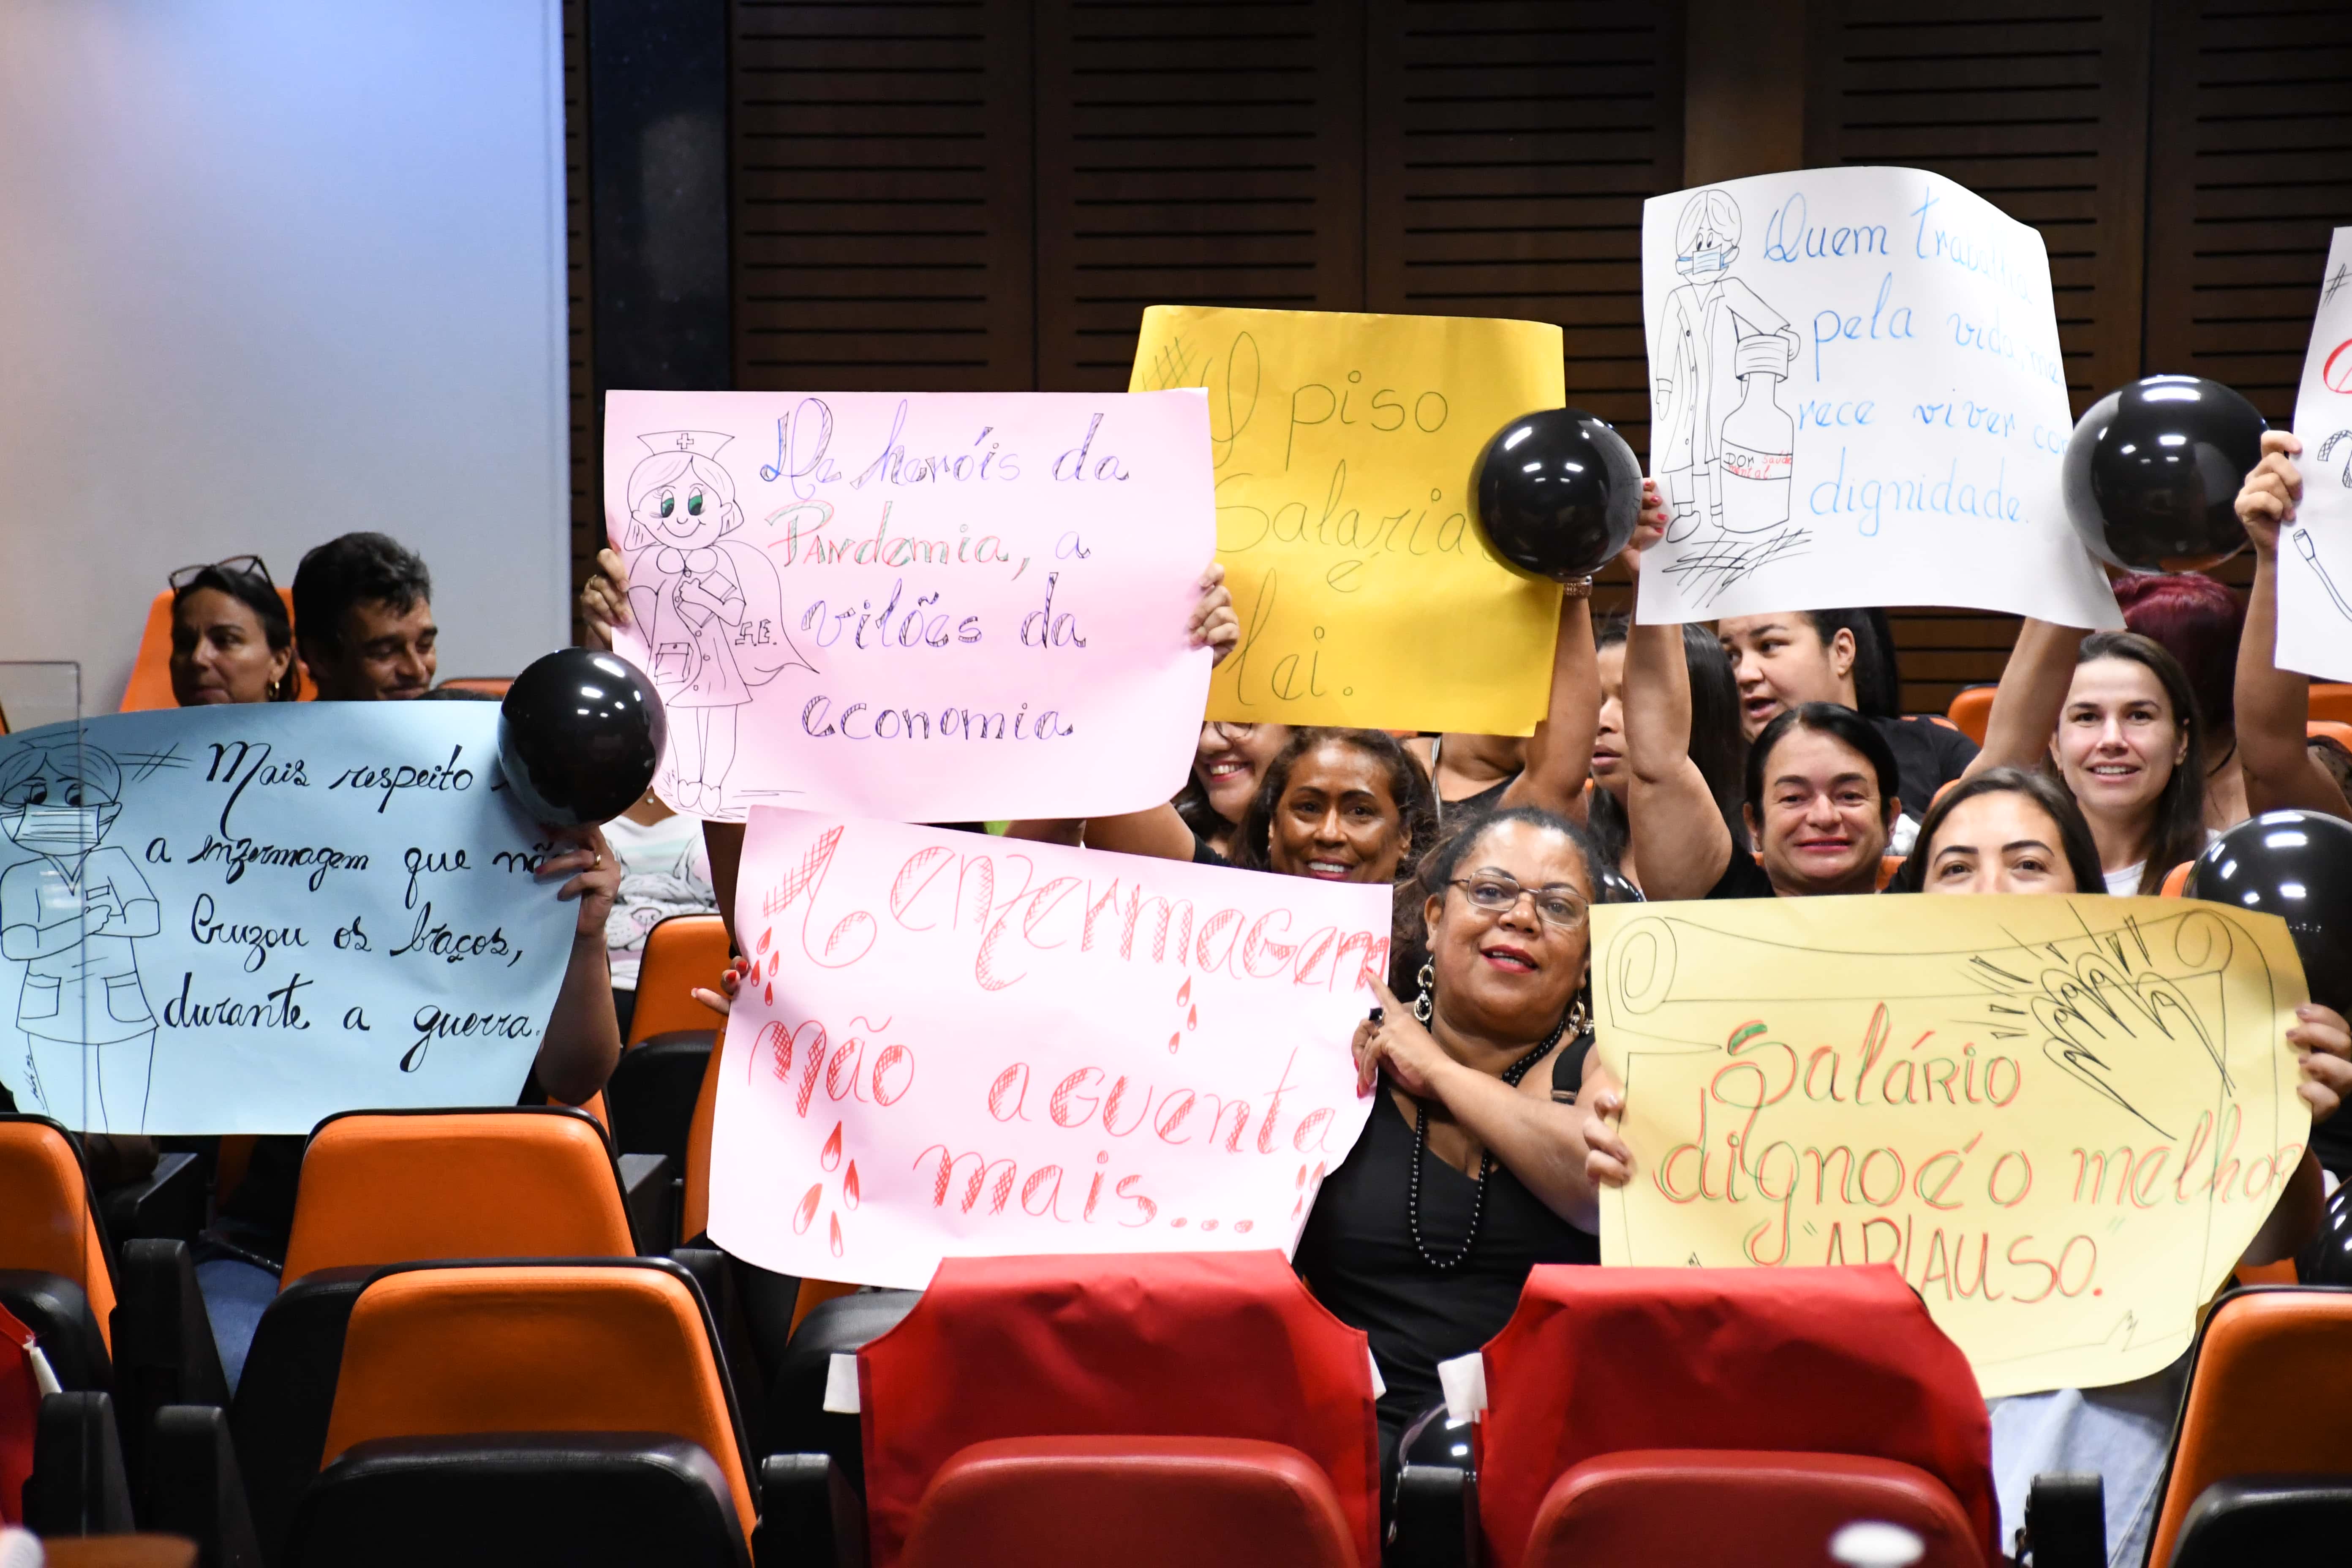 Mais respeito
a enfermagem que não
Cruzou os braços,
durante a guerra.
De heróis da
Pandemia, a
vilões da
economia
S.E.
# O piso
Salaria
é
lei.
Quem trabalha
pela vida, me
rece viver com
dignidade.
Dor saúde
mental
A enfermagem
não aguenta
mais...
Salário
digno é o melhor
"APLAUSO."
#